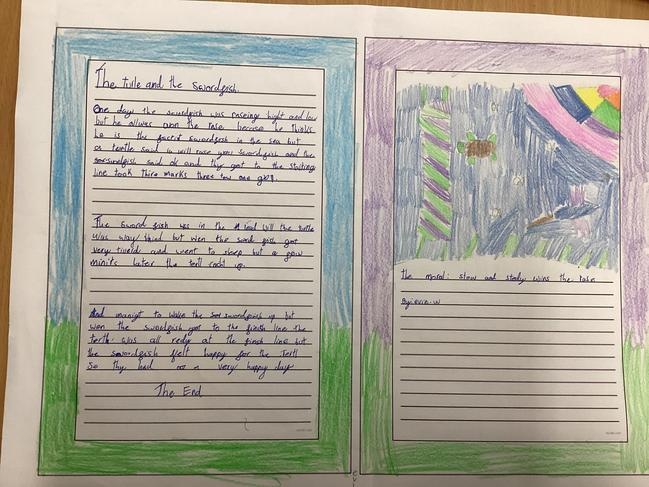 The tutle and the swordfish.
One day the swordfish was raceing hight and low
but he allwas won the rase because he thinks
he is the fastist swordfish in the sea but
a tertle said I will race you swordfish and the
swordfish said ok and they got to the starting
line took thire marks three tow one go!.
The sword fish was in the lead till the turtle
was way behind but wen the sword fish got
very tired and went to sleep but a few
minits later the tertl up.
And manigt to waken the swordfish up but
wen the swordfish got to the finish line the
tertle was all redy at the finish line but
the swordfish felt happy for the tertl
So thy had a very happy day
The End
The moral: slow and stedy wins the rase
By: evin.w